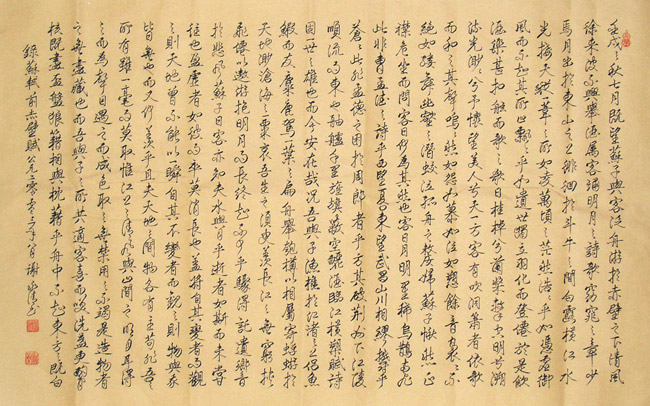 壬戌之秋七月既望蘇子與客泛舟游於赤壁之下清風
徐來水波不興舉酒屬客誦明月之詩歌窈窕之章少
焉月出於東山之上徘徊於斗牛之間白露橫江水
光接天縱一葦之所如凌萬頃之茫然浩浩乎如馮虛御
風而不知其所止飄飄乎如遺世獨立羽化而登僊於是飲
酒樂甚扣舷而歌之歌曰桂棹兮蘭槳擊空明兮溯
流光渺渺兮予懷望美人兮天一方客有吹洞簫者依歌
而和之其聲嗚嗚然如怨如慕如泣如訴餘音裊裊不
絕如縷舞幽壑之潛蛟泣孤舟之嫠婦蘇子愀然正
襟危坐而問客曰何為其然也客曰月明星稀烏鵲南飛
此非曹孟德之詩乎西望夏口東望武昌山川相繆鬱乎
蒼蒼此非孟德之困於周郎者乎方其破荊州下江陵
順流而東也舳艫千里旌旗蔽空釃酒臨江橫槊賦詩
固一世之雄也而今安在哉況吾與子漁樵於江渚之上侶魚
蝦而友麋鹿駕一葉之扁舟舉匏樽以相屬寄蜉蝣於
天地渺滄海之一粟哀吾生之須臾羨長江之無窮挾
飛僊以遨遊抱明月而長終知不可乎驟得託遺響
於悲風蘇子曰客亦知夫水與月乎逝者如斯而未嘗
往也盈虛者如彼而卒莫消長也蓋將自其變者而觀
之則天地曾不能以一瞬自其不變者而觀之則物與我
皆無盡也而又何羨乎且夫天地之間物各有主苟非吾之
所有雖一毫而莫取惟江上之清風與山間之明月耳得
之而為聲目遇之而成色取之無禁用之不竭是造物者
之無盡藏也而吾與子之所共適客喜而笑洗盞更酌肴
核既盡杯盤狼籍相與枕藉乎舟中不知東方之既白
錄蘇軾前赤壁賦公元二零零